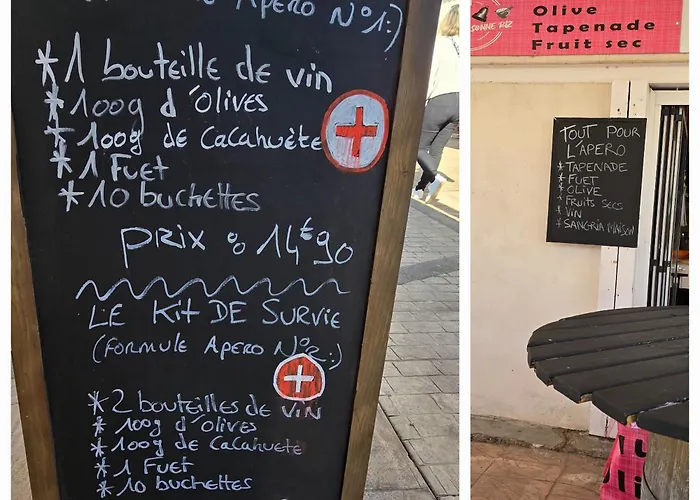 Apero N°1:)
* 1 bouteille de vin
* 100g d'Olives
* 100g de Cacahuète
* 1 Fuet
* 10 buchettes
PRIX : 14€90
LE Kit DE SURVIE
(FORMULE Apero N°2:)
* 2 bouteilles de VIN
* 100g d'Olives
* 100g de Cacahuete
* 1 Fuet
* 10 buchettes
Olive
Tapenade
Fruit sec
TOUT POUR
L'APERO
* TAPENADE
* FUET
* OLIVE
* FRUITS SECS
* VIN
* SANGRIA MAISON